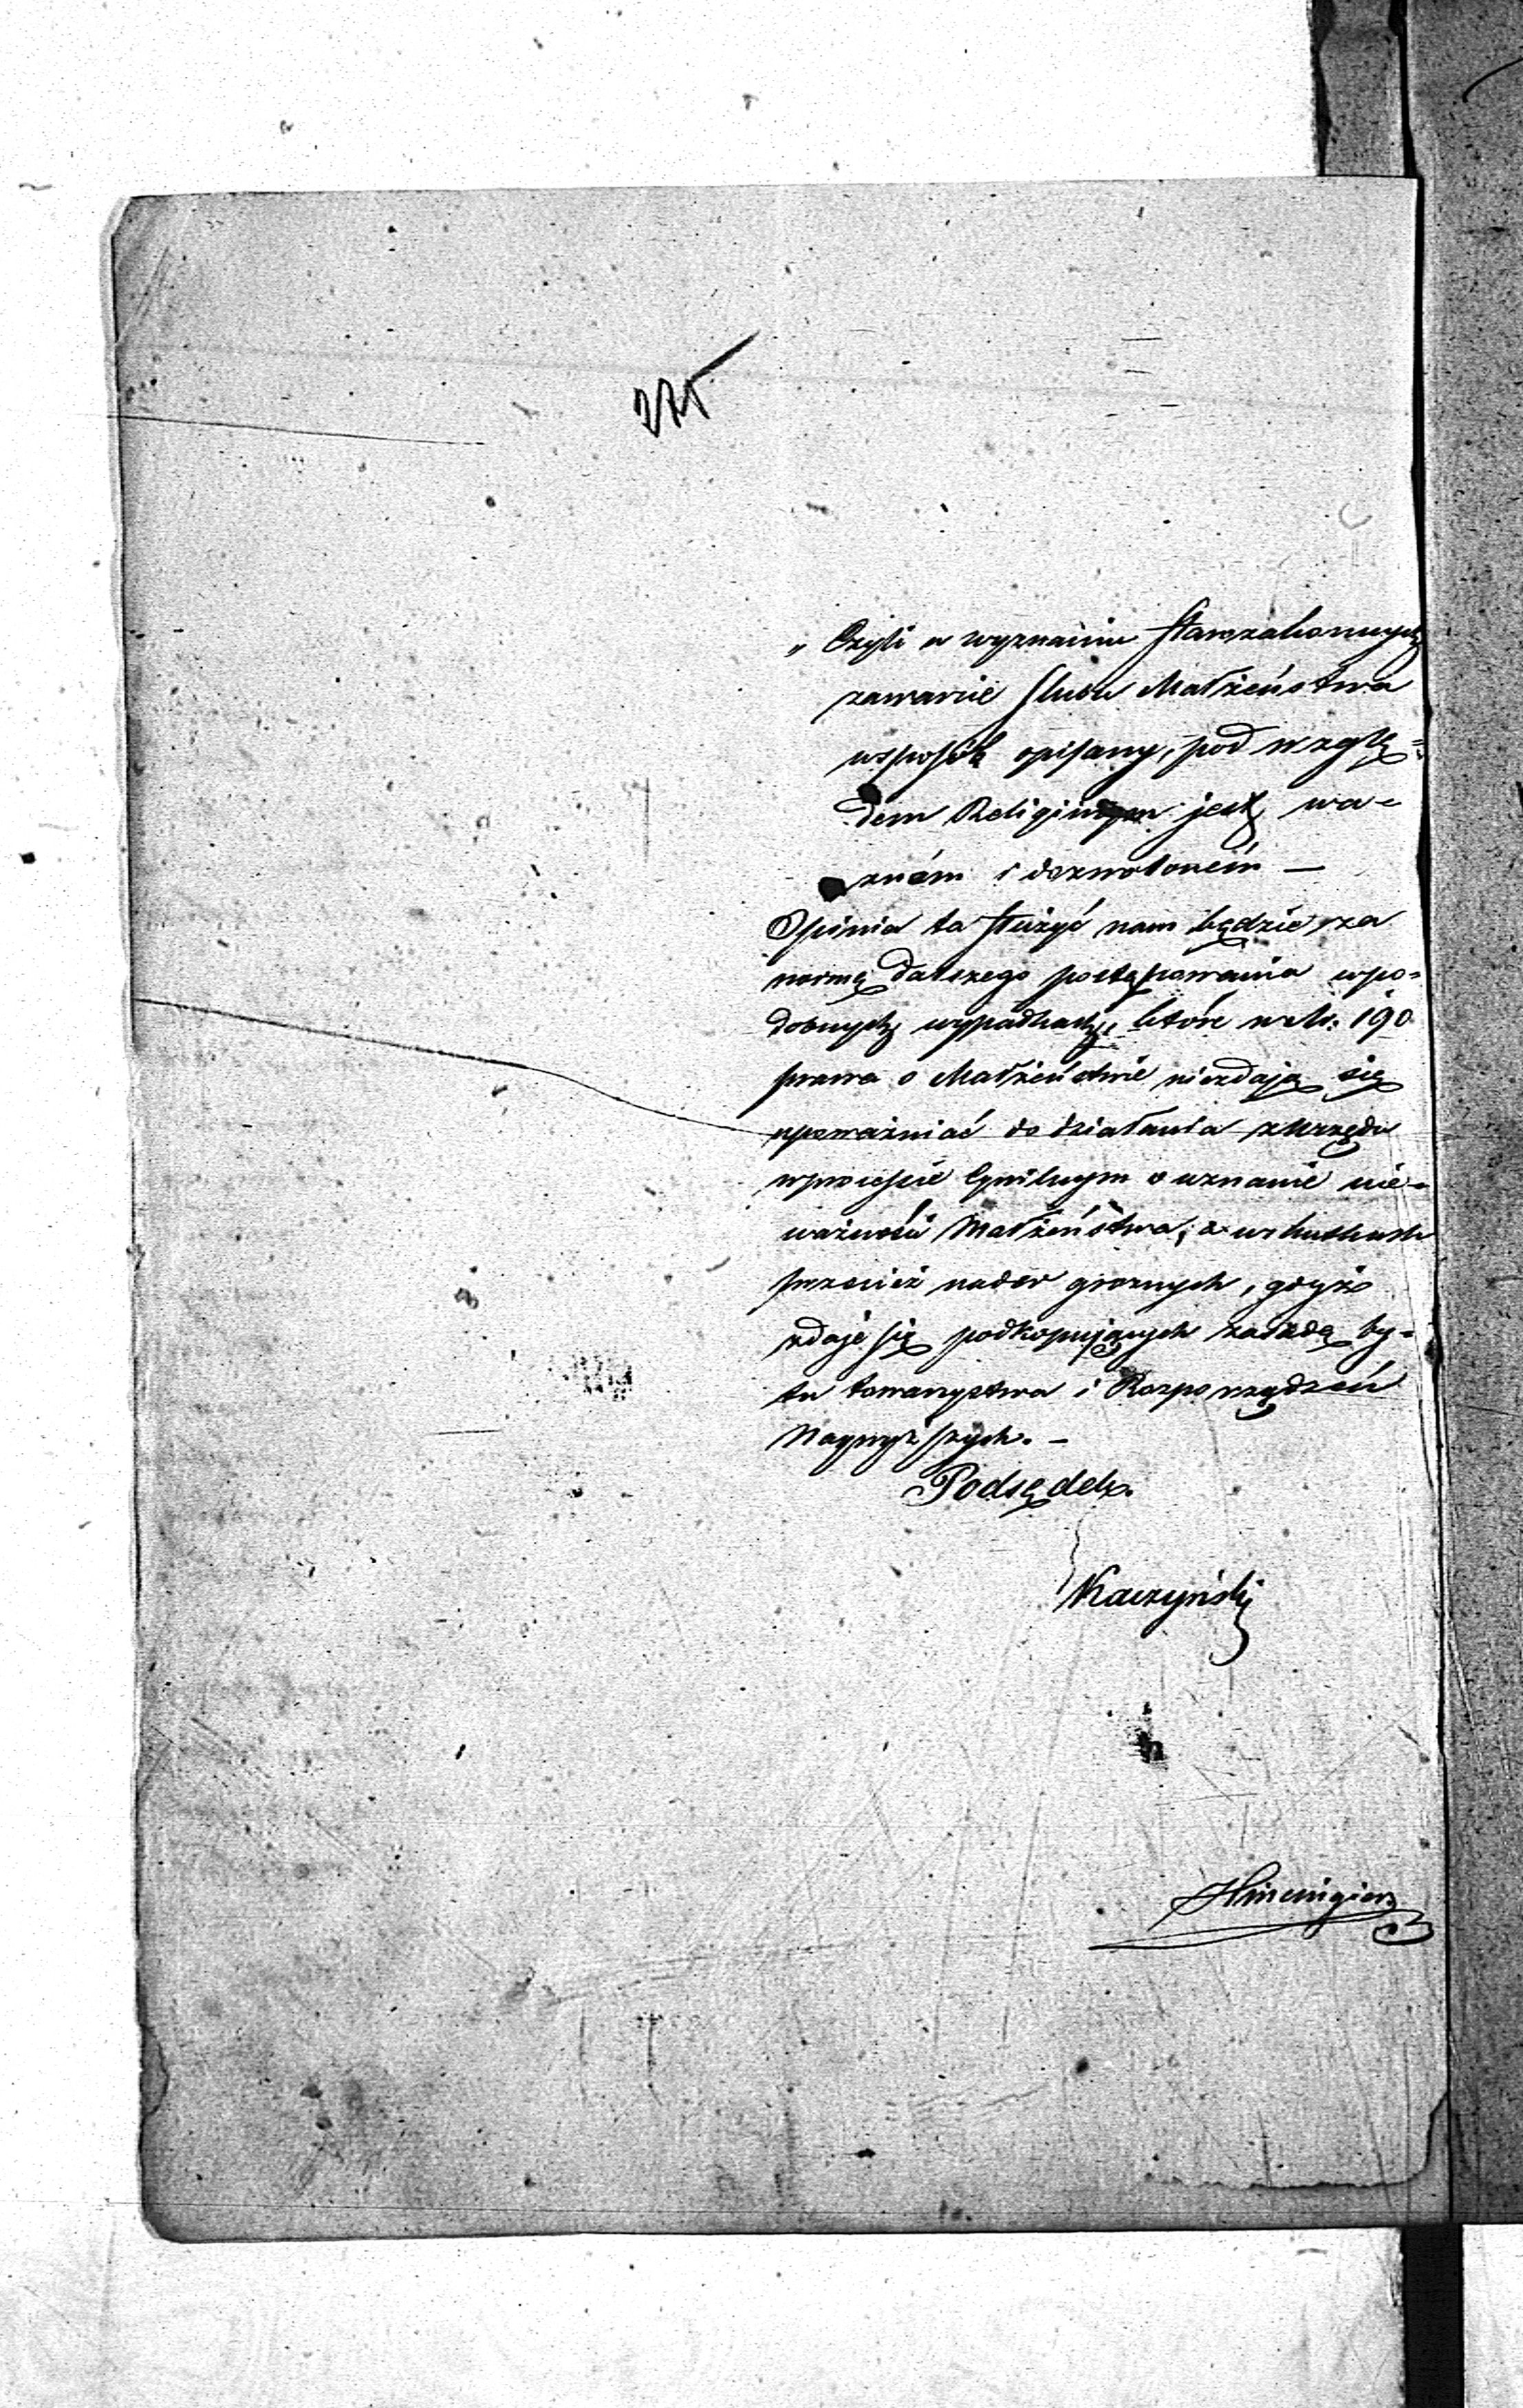 275
„ Czyli w wyznaniu Starozakonnych
zawarcie slubu Małżeństwa
wsposób opisany, pod wzglę=
dem Religinym jest wa=
żném i dozwoloném —
Opinia ta służyć nam będzie za
normę dalszego postępowania wpo=
dobnych wypadkach, które 190
prawa o Małżeństwie niezdają się
upoważniać do działania zUrzędu
wprocessie Cywilnym o uznanie nie=
ważności Małżeństwa, a wskutkach
przecież nader groznych, gdyż
zdaje się podkopujących zasadę by=
tu towarzystwa i Rozporządzeń
Naywyższych. —
Podsędek.
Kaczyński